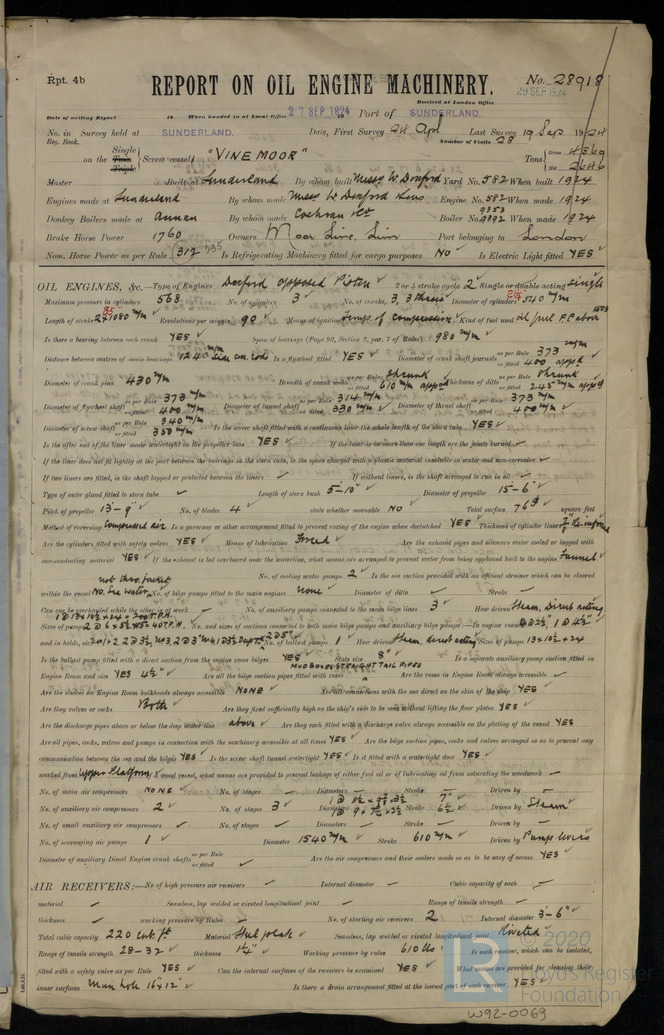 Rpt. 4b
REPORT ON OIL ENGINE MACHINERY.
No. 28918
29 SEP 1924
Received at London Office
Date of writing Report 19 When handed in at Local Office 27 SEP 1924 Port of SUNDERLAND.
No. in Survey held at SUNDERLAND. Date, First Survey 24 Apl Last Survey 19 Sep 1924
Reg. Book. Number of Visits 28
on the Single Twin Triple Screw vessel "VINEMOOR" Tons Gross 4369 Net 2646
Master Built at Sunderland By whom built Messrs W Doxford Yard No. 582 When built 1924
Engines made at Sunderland By whom made Messrs W Doxford Sons Engine No. 582 When made 1924
Donkey Boilers made at Annan By whom made Cochran & Co Boiler No. 9392 When made 1924
Brake Horse Power 1760 Owners Moor Line, Lim Port belonging to London
Nom. Horse Power as per Rule 312 Is Refrigerating Machinery fitted for cargo purposes NO Is Electric Light fitted YES
OIL ENGINES, &c.—Type of Engines Doxford opposed Piston 2 or 4 stroke cycle 2 Single or double acting Single
Maximum pressure in cylinders 568 No. of cylinders 3 No. of cranks, 3, 3 throw Diameter of cylinders 540 m/m
Length of stroke 2 x 1080 m/m Revolutions per minute 90 Means of ignition Temp. of Compression Kind of fuel used oil fuel F.P. above 150°F
Is there a bearing between each crank YES Span of bearings (Page 92, Section 2, par. 7 of Rules) 980 m/m
Distance between centres of main bearings 1240 m/m Is a flywheel fitted YES Diameter of crank shaft journals as per Rule 373 m/m as fitted 400 appd
Diameter of crank pins 430 m/m Breadth of crank webs as per Rule Shrunk as fitted 610 m/m appd Thickness of ditto as per Rule Shrunk as fitted 245 m/m appd
Diameter of flywheel shaft as per Rule 373 m/m as fitted 400 m/m Diameter of tunnel shaft as per Rule 314 m/m as fitted 330 m/m Diameter of thrust shaft as per Rule 373 m/m as fitted 400 m/m
Diameter of screw shaft as per Rule 340 m/m as fitted 350 m/m Is the screw shaft fitted with a continuous liner the whole length of the stern tube YES
Is the after end of the liner made watertight in the propeller boss YES If the liner is in more than one length are the joints burned
If the liner does not fit tightly at the part between the bearings in the stern tube, is the space charged with a plastic material insoluble in water and non-corrosive
If two liners are fitted, is the shaft lapped or protected between the liners If without liners, is the shaft arranged to run in oil
Type of outer gland fitted to stern tube Length of stern bush 5'-10" Diameter of propeller 15'-6"
Pitch of propeller 13'-9" No. of blades 4 state whether moveable NO Total surface 76 square feet
Method of reversing Compressed air Is a governor or other arrangement fitted to prevent racing of the engine when declutched YES Thickness of cylinder liners
Are the cylinders fitted with safety valves YES Means of lubrication Forced Are the exhaust pipes and silencers water cooled or lagged with
non-conducting material YES If the exhaust is led overboard near the waterline, what means are arranged to prevent water from being syphoned back to the engine Funnel
No. of cooling water pumps 2 Is the sea suction provided with an efficient strainer which can be cleared
within the vessel No. of bilge pumps fitted to the main engines none Diameter of ditto Stroke
Can one be overhauled while the other is at work No. of auxiliary pumps connected to the main bilge lines 3 How driven Steam, direct acting
Sizes of pumps No. and sizes of suctions connected to both main bilge pumps and auxiliary bilge pumps:—In engine room
and in holds, &c. No. of ballast pumps 1 How driven Steam direct acting Sizes of pumps 13 x 10½ x 24
Is the ballast pump fitted with a direct suction from the engine room bilges YES State size 8" Is a separate auxiliary pump suction fitted in
Engine Room and size YES 4½" Are all the bilge suction pipes fitted with roses MUD BOXES STRAIGHT TAIL PIPES Are the roses in Engine Room always accessible
Are the sluices on Engine Room bulkheads always accessible NONE Are all connections with the sea direct on the skin of the ship YES
Are they valves or cocks Both Are they fixed sufficiently high on the ship's side to be seen without lifting the floor plates YES
Are the discharge pipes above or below the deep water line above Are they each fitted with a discharge valve always accessible on the plating of the vessel YES
Are all pipes, cocks, valves and pumps in connection with the machinery accessible at all times YES Are the bilge suction pipes, cocks and valves arranged so as to prevent any
communication between the sea and the bilges YES Is the screw shaft tunnel watertight YES Is it fitted with a watertight door YES
worked from Upper Platform If a wood vessel, what means are provided to prevent leakage of either fuel oil or of lubricating oil from saturating the woodwork
No. of main air compressors NONE No. of stages Diameters Stroke Driven by
No. of auxiliary air compressors 2 No. of stages 3 Diameters Stroke 7" 6½" Driven by Steam
No. of small auxiliary air compressors No. of stages Diameters Stroke Driven by
No. of scavenging air pumps 1 Diameter 1540 m/m Stroke 610 m/m Driven by Pump levers
Diameter of auxiliary Diesel Engine crank shafts as per Rule as fitted Are the air compressors and their coolers made so as to be easy of access YES
AIR RECEIVERS:—No. of high pressure air receivers Internal diameter Cubic capacity of each
material Seamless, lap welded or riveted longitudinal joint Range of tensile strength
thickness working pressure by Rules No. of starting air receivers 2 Internal diameter 3'-6"
Total cubic capacity 220 cub. ft Material Steel plate Seamless, lap welded or riveted longitudinal joint Riveted
Range of tensile strength 28-32 thickness 1¼" Working pressure by rules 610 lbs Is each receiver, which can be isolated,
fitted with a safety valve as per Rule YES Can the internal surfaces of the receivers be examined YES What means are provided for cleaning their
inner surfaces Man hole 16" x 12" Is there a drain arrangement fitted at the lowest part of each receiver YES
LR © 2020
Lloyd's Register
Foundation
W92-0069